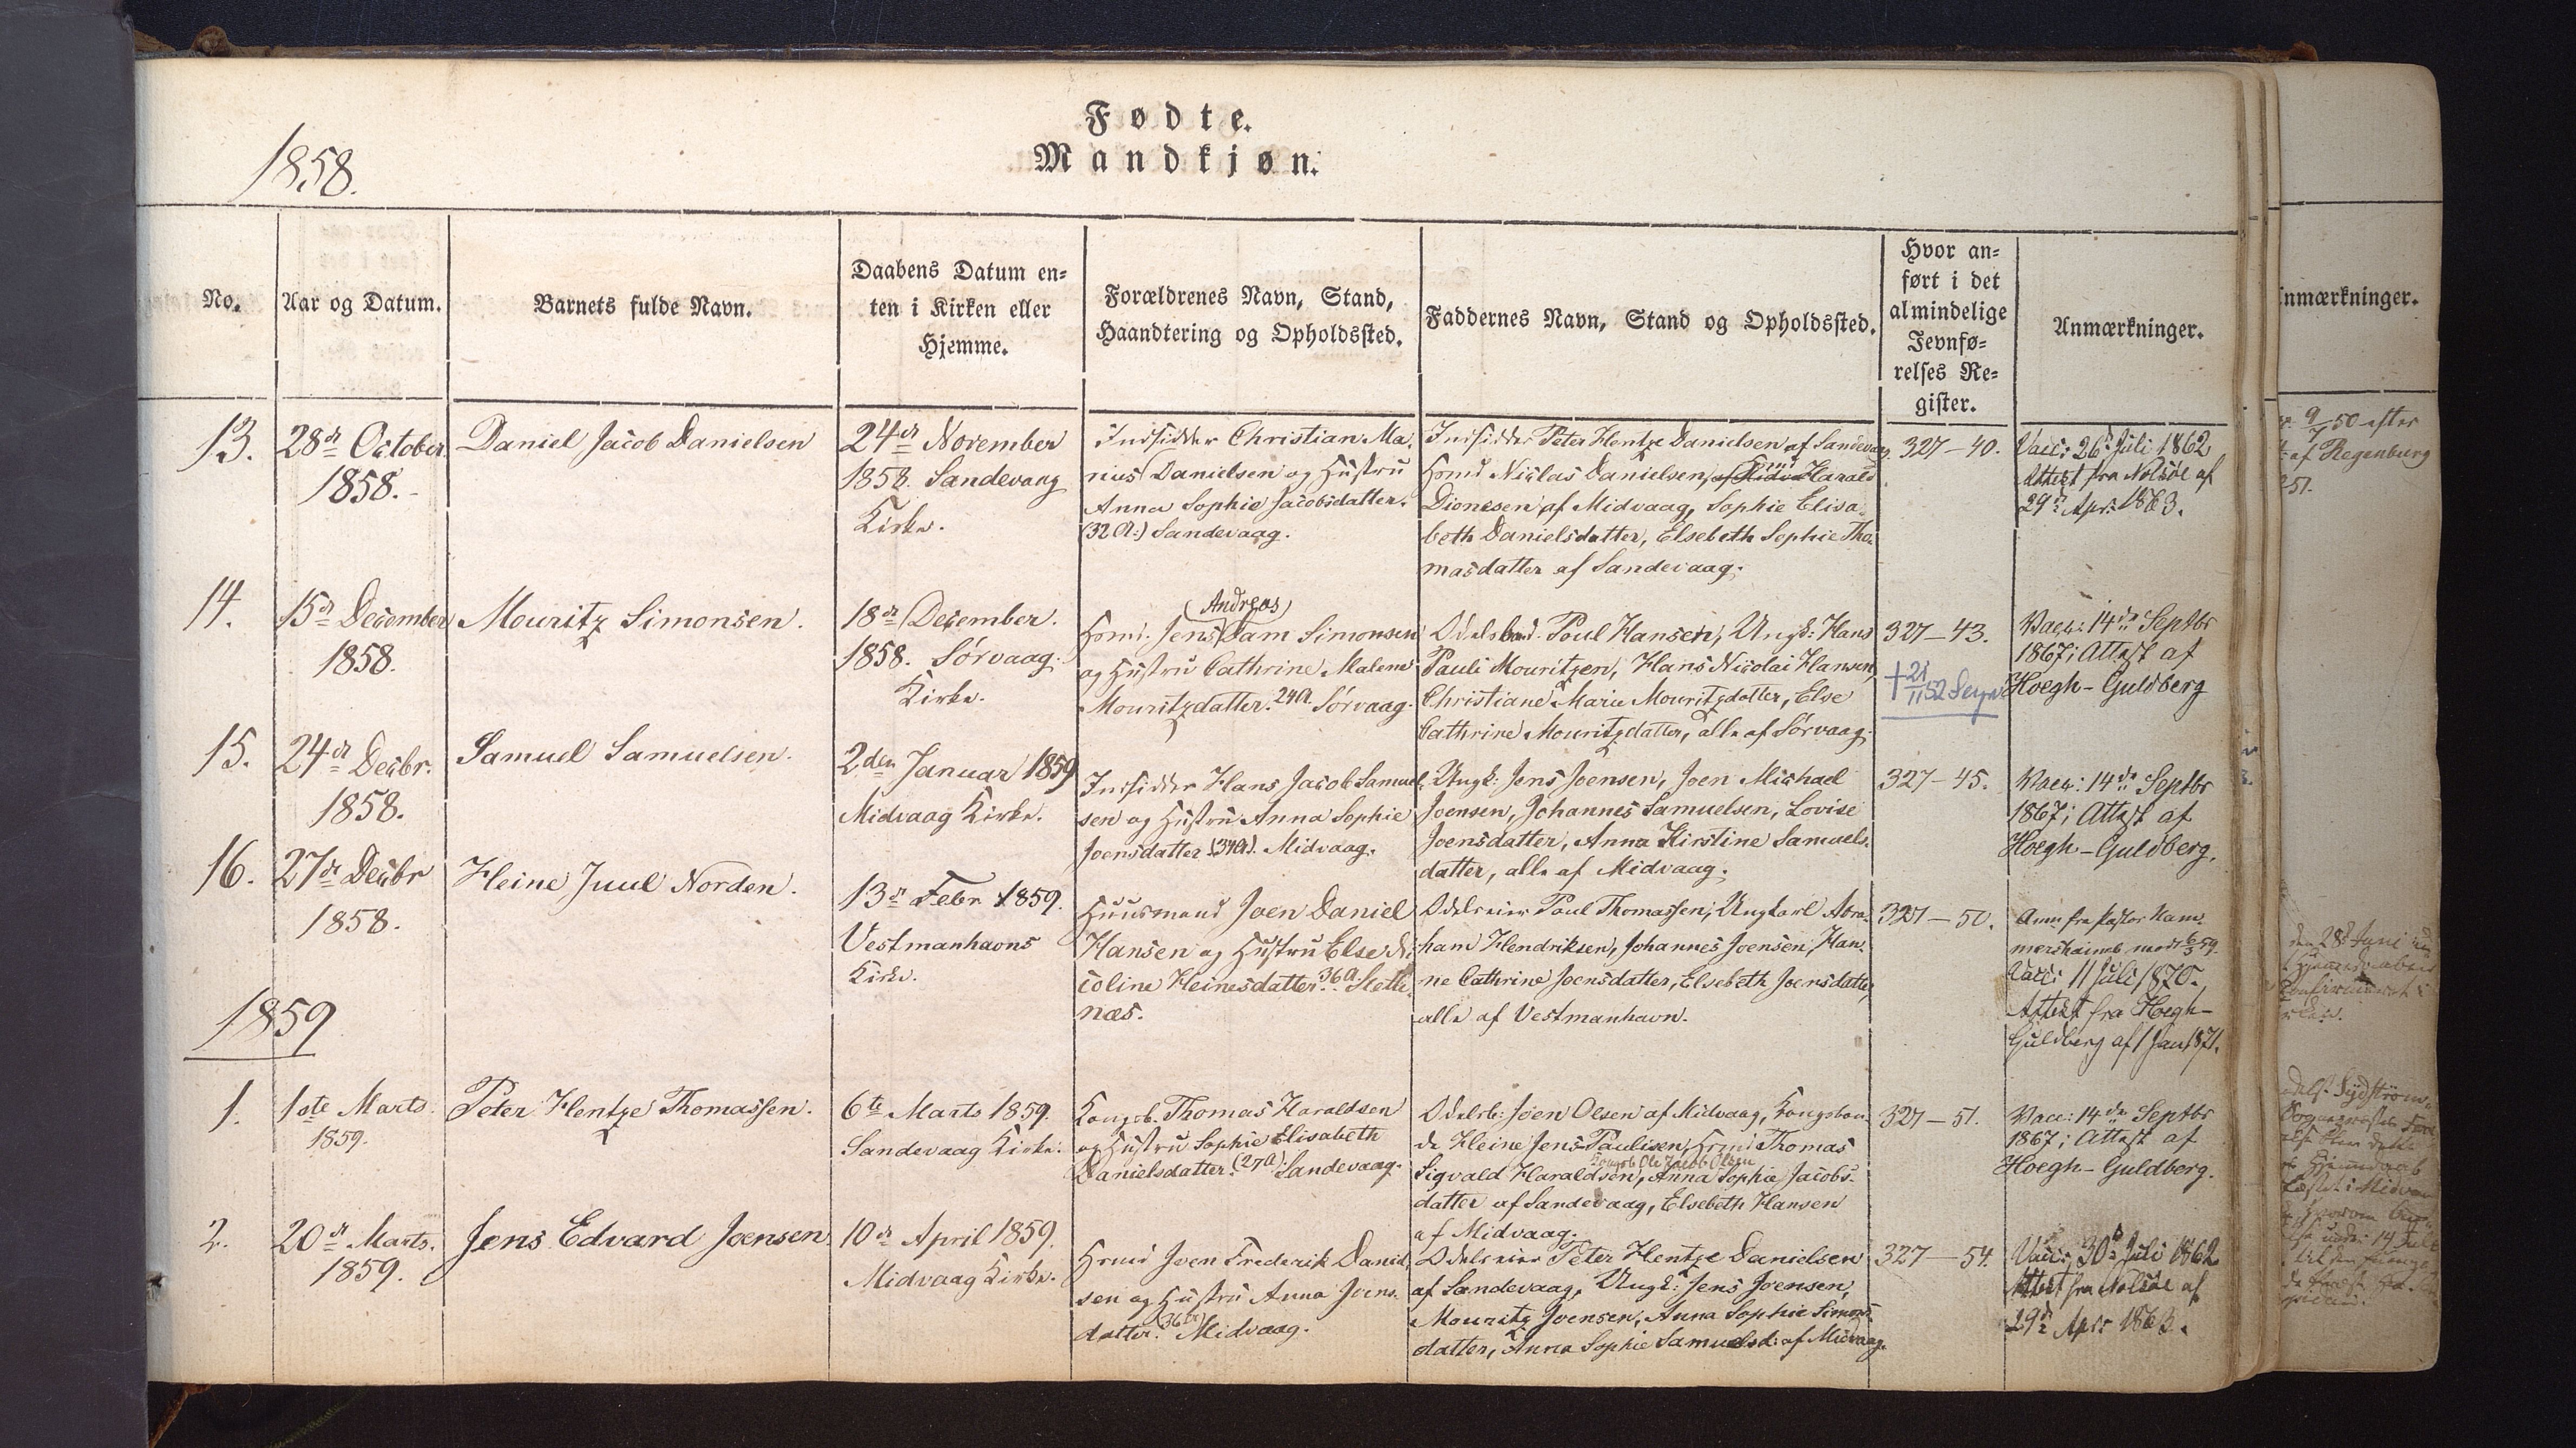 Fødte.
Mandkjøn.
1858.
No.
Aar og Datum.
Barnets fulde Navn.
Daabens Datum en-
ten i Kirken eller
Hjemme.
Forældrenes Navn, Stand,
Haandtering og Opholdssted.
Faddernes Navn, Stand og Opholdssted.
Hvor an-
ført i det
almindelige
Jevnfø-
relses Re-
gister.
Anmærkninger.
13.
28de October
1858.
Daniel Jacob Danielsen
24de November
1858. Sandevaag
Kirke.
Indsidder Christian Ma-
nius Danielsen og Hustru
Anna Sophie Jacobsdatter.
(32 A.) Sandevaag.
Indsidder Peter Hentze Danielsen af Sandevaag.
Niclas Danielsen, Harald
Dionesen af Midvaag, Sophie Elisa-
beth Danielsdatter, Elsebeth Sophie Tho-
masdatter af Sandevaag.
327-40.
Vacc: 26de Juli 1862
Attest fra Nolsøe af
29de Apr: 1863.
14.
15de December
1858.
Mouritz Simonsen.
18de December.
1858. Sörvaag
Kirke.
(Andreas)
Jens Dam Simonsen
og Hustru Cathrine Malene
Mouritzdatter. 24 A. Sörvaag.
Odelsbond. Poul Hansen, Ungk: Hans
Pauli Mouritzen, Hans Nicolai Hansen,
Christiane Marie Mouritzdatter, Else
Cathrine Mouritzdatter, alle af Sörvaag.
327-43.
† 21/11 52
Vacc: 14de Septbr
1867; Attest af
Hoegh-Guldberg
15.
24de Decbr.
1858.
Samuel Samuelsen.
2den Januar 1859
Midvaag Kirke.
Indsidder Hans Jacob Samuel-
sen og Hustru Anna Sophie
Joensdatter (34 A). Midvaag.
Ungk: Jens Joensen, Joen Michael
Joensen, Johannes Samuelsen, Lovise
Joensdatter, Anna Kirstine Samuels-
datter, alle af Midvaag.
327-45.
Vacc: 14de Septbr
1867; Attest af
Hoegh-Guldberg.
16.
27de Decbr
1858.
Heine Juul Norden.
13de Febr 1859.
Vestmanhavns
Kirke.
Huusmand Joen Daniel
Hansen og Hustru Else Ni-
coline Heinesdatter. 36 A. Slette-
næs.
Odelseier Poul Thomassen, Ungkarl Abra-
ham Hendriksen, Johannes Joensen, Han-
ne Cathrine Joensdatter, Elsebeth Joensdatter,
alle af Vestmanhavn.
327-50.
Anm fra Pastor Ham-
Vacc: 11 Juli 1870.
Attest fra Hoegh-
Guldberg af 1 Jan 1871.
1859
1.
1ste Marts
1859.
Peter Hentze Thomassen.
6te Marts 1859.
Sandevaag Kirke.
Kongsb. Thomas Haraldsen
og Hustru Sophie Elisabeth
Danielsdatter. (27 A) Sandevaag.
Odelsb: Joen Olsen af Midvaag, Kongsbon-
de Heine Jens Paulisen, Thomas
Kongsb Ole Jacob Olsen
Sigvald Haraldsen, Anna Sophie Jacobs-
datter af Sandevaag, Elsebeth Hansen
af Midvaag.
327-51.
Vacc: 14de Septbr
1867; Attest af
Hoegh-Guldberg.
2.
20de Marts.
1859.
Jens Edvard Joensen
10de April 1859.
Midvaag Kirke.
Joen Frederik Daniel-
sen og Hustru Anna Joens-
datter. (36 A) Midvaag.
Odelseier Peter Hentze Danielsen
af Sandevaag, Ungk: Jens Joensen,
Mouritz Joensen, Anna Sophie Simons-
datter, Anna Sophie Samuelsd: af Midvaag.
327-54.
Vacc: 30de Juli 1862
Attest fra Nolsøe af
29de Apr: 1863.
nmærkninger.
9/7 50 efter
af Regenburg